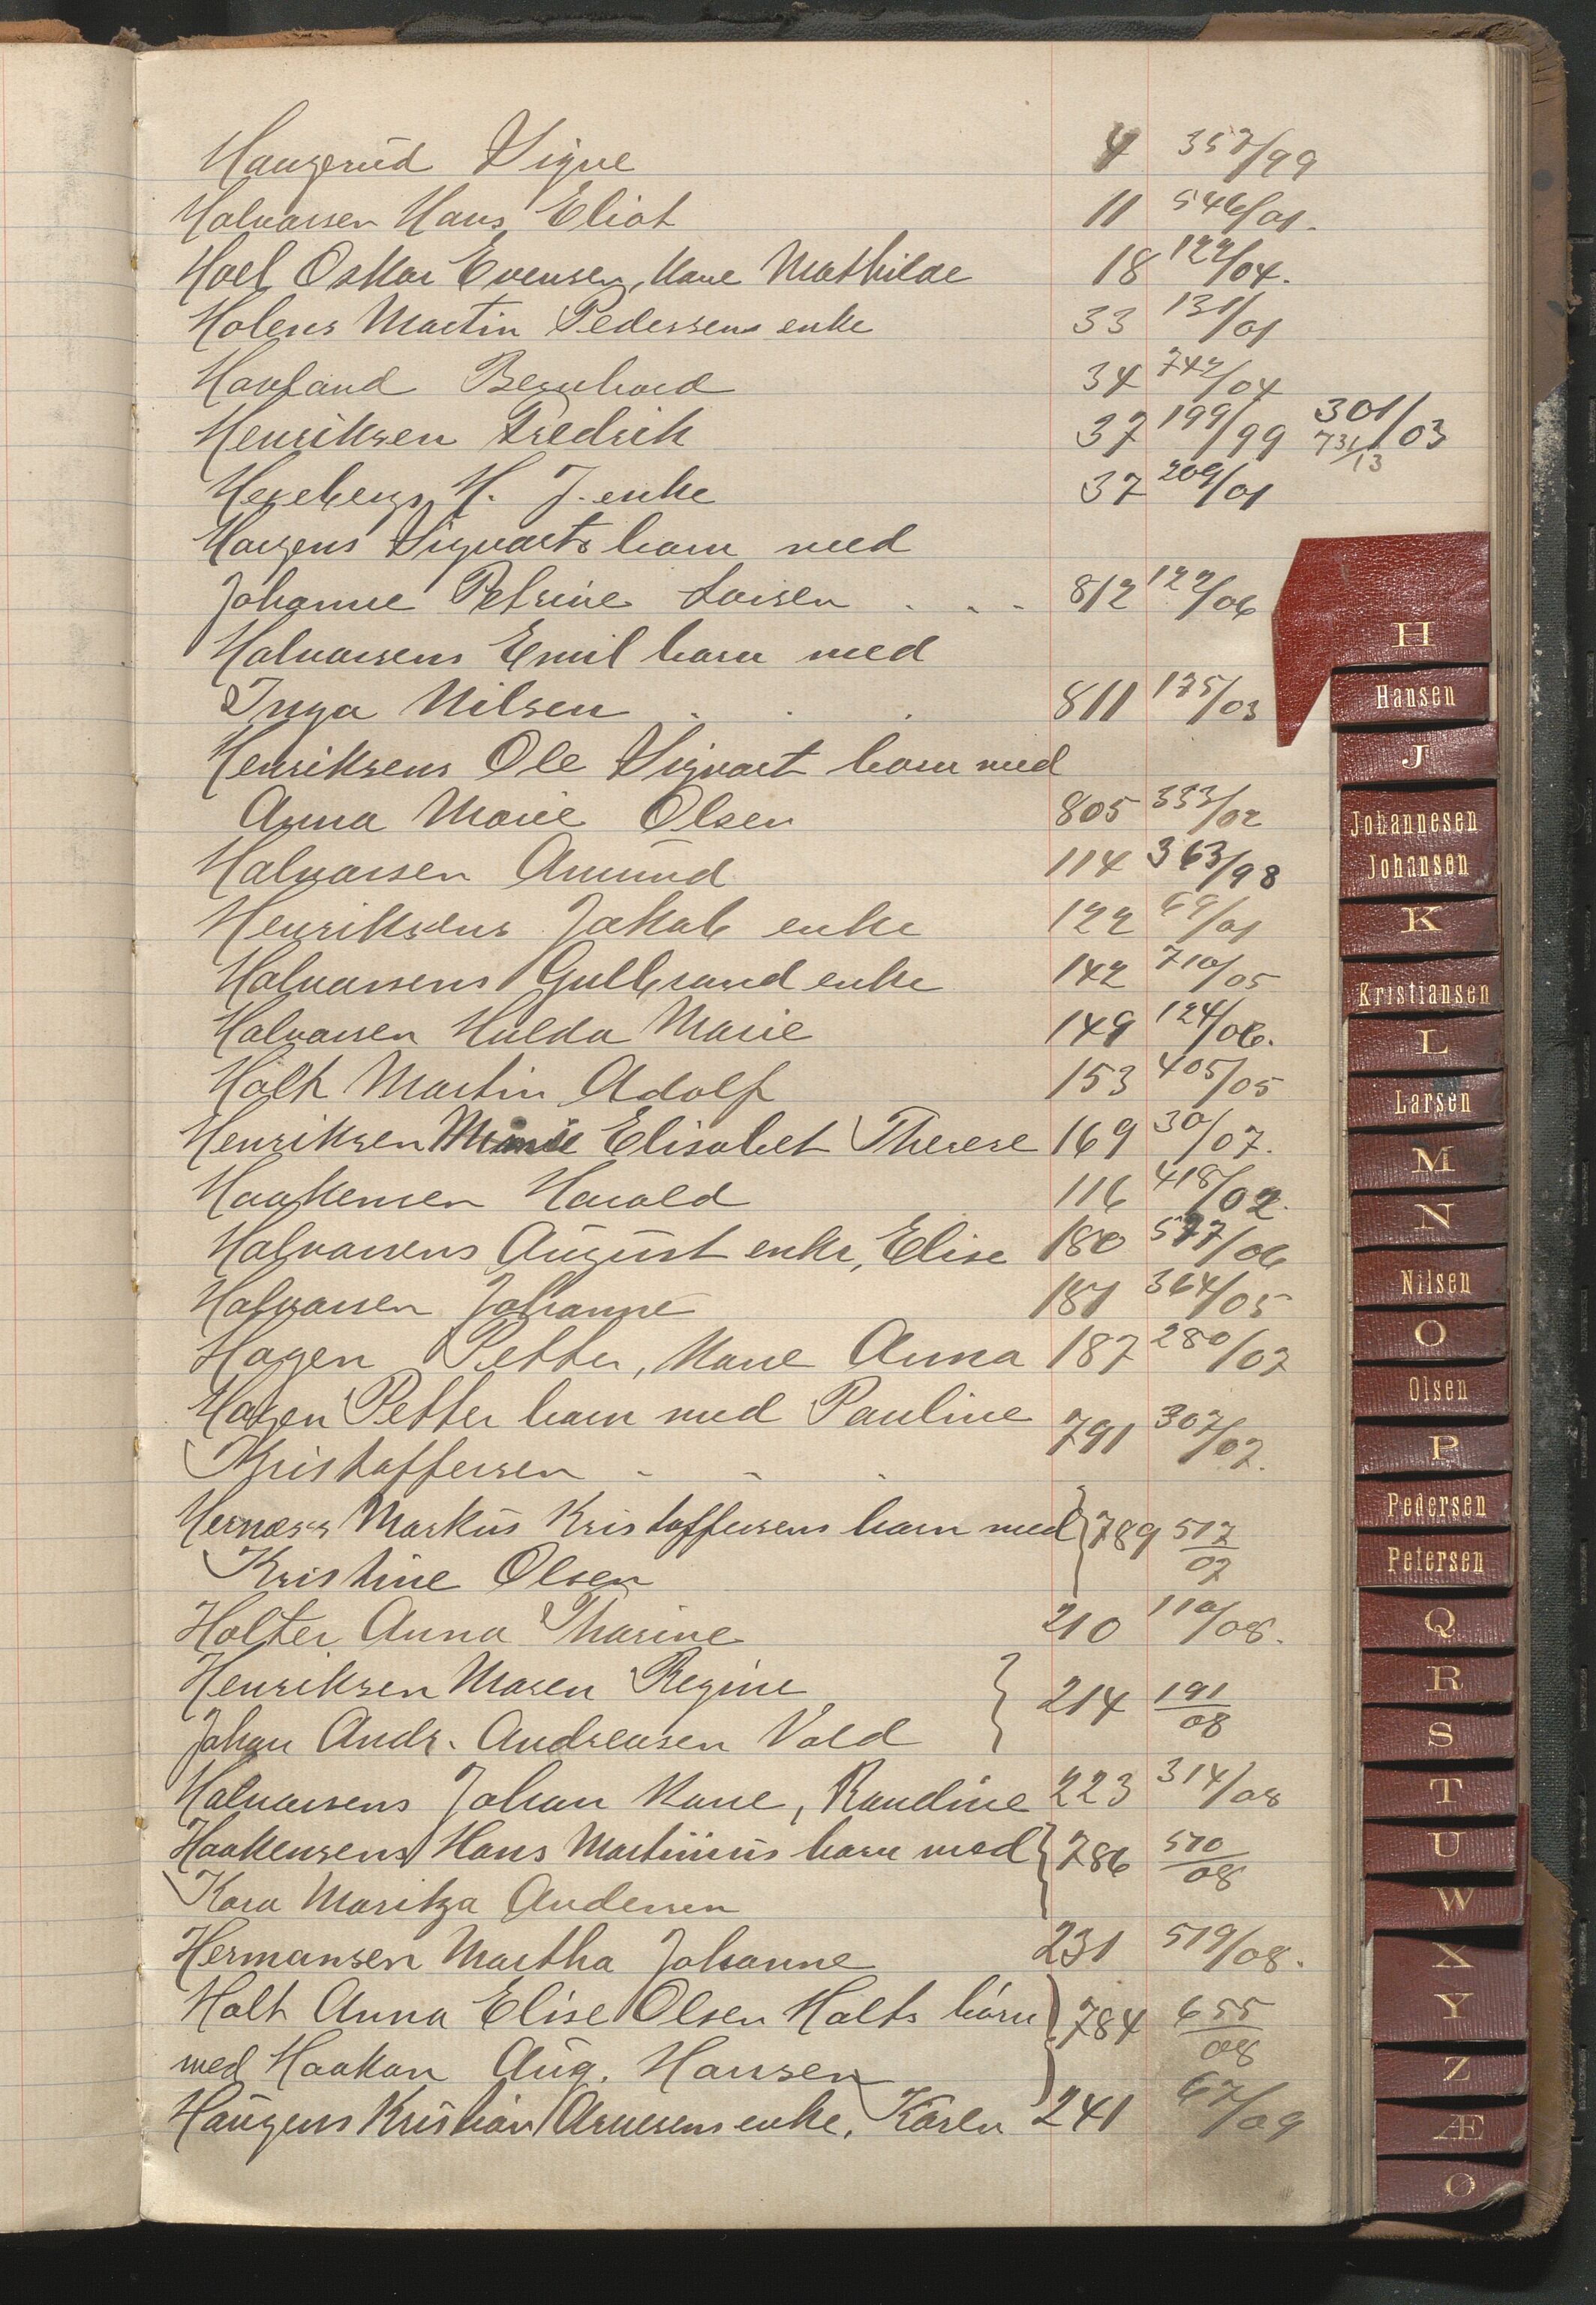 Haugerud Signe 4 357/99
Halvorsen Hans Eliot 11 546/01.
Hoel Oskar Evensen, Kone Mathilde 18 122/04.
Holens Martin Pedersens enke 33 131/01
Havland Bernhard 34 742/04
Henriksen Fredrik 37 199/99 301/03 731/13
Hexebergs H. J. enke 37 209/01
Haugens Sigvarts barn med
Johanne Petrine Larsen . . . 812 122/06
Halvorsens Emil barn med
Inga Nilsen . . . 811 175/03
Henriksens Ole Sigvart barn med
Anna Marie Olsen 805 333/02
Halvorsen Amund 114 363/98
Henriksens Jakob enke 122 69/01
Halvorsens Gulbrand enke 142 710/05
Halvorsen Hulda Marie 149 124/06.
Holt Martin Adolf 153 405/05
Henriksen Elisabet Therese 169 30/07.
Haakensen Harald 116 418/02.
Halvorsens August enke, Elise 180 577/06
Halvorsen Johanne 181 364/05
Hagen Petter, Kone Anna 187 280/07
Hagen Petter barn med Pauline
Kristoffersen - - . 791 307/07.
Hernæss Markus Kristoffersens barn med } 789 517/07
Kristine Olsen
Holter Anna Tharine 210 110/08.
Henriksen Maren Regine } 214 191/08
Johan Andr. Andreasen Vold
Halvorsens Johan Kone, Randine 223 314/08
Haakensens Hans Martinius barn med } 786 510/08
Kara Maritza Andersen
Hermansen Martha Johanne 231 519/08.
Holt Anna Elise Olsen Holts børn } 784 655/08
med Haakon Aug. Hansen
Haugens Kristian Arnesens enke, Karen 241 67/09
H
Hansen
J
Johannesen
Johansen
K
Kristiansen
L
Larsen
M
N
Nilsen
O
Olsen
P
Pedersen
Petersen
Q
R
S
T
U
W
X
Y
Z
Æ
Ø